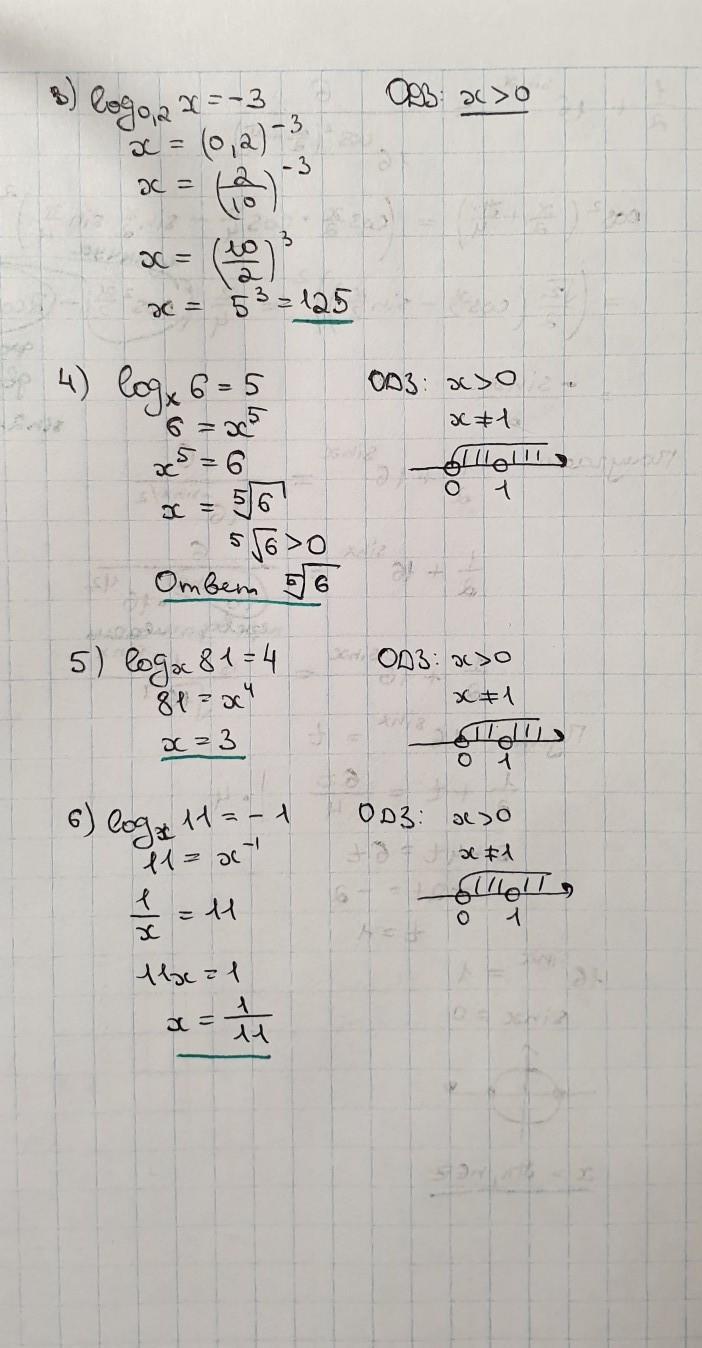 3) log₀,₂ x = -3 ОДЗ: x>0
x = (0,2)⁻³
x = (2/10)⁻³
x = (10/2)³
x = 5³ = 125
4) logₓ 6 = 5 ОДЗ: x>0
6 = x⁵ x≠1
x⁵ = 6
x = ⁵√6 0 1
⁵√6 > 0
Ответ ⁵√6
5) logₓ 81 = 4 ОДЗ: x>0
81 = x⁴ x≠1
x = 3 0 1
6) logₓ 11 = -1 ОДЗ: x>0
11 = x⁻¹ x≠1
1/x = 11 0 1
11x = 1
x = 1/11